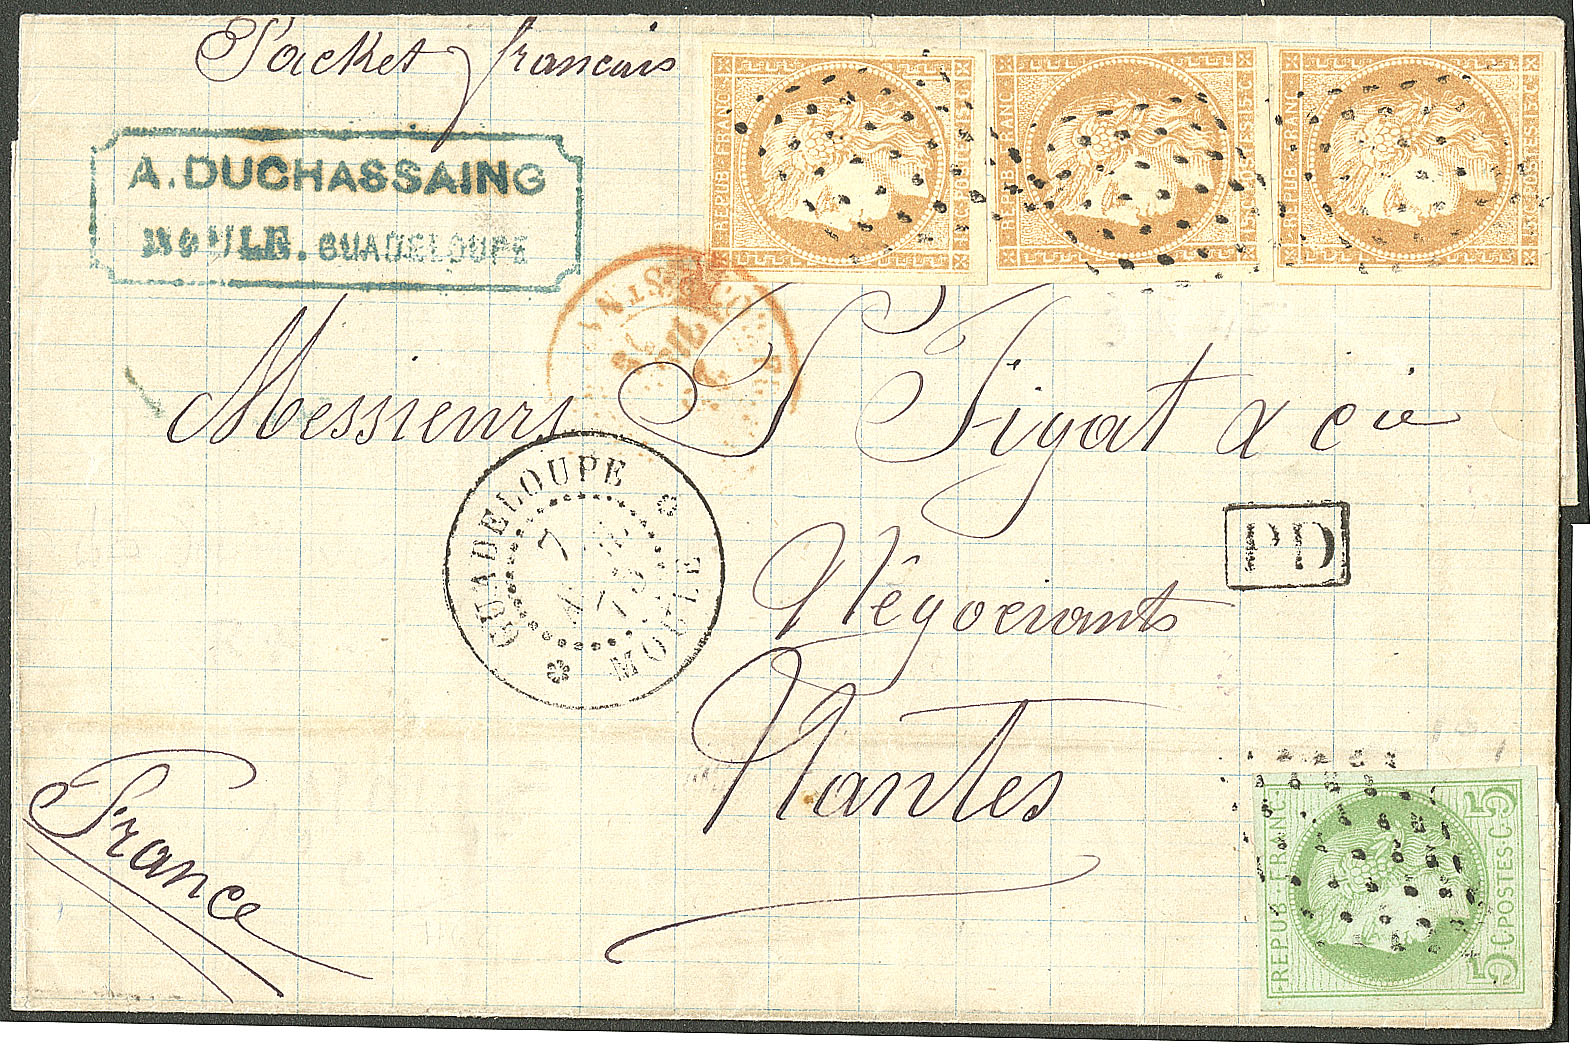 Packet francais
A. DUCHASSAING
MOULE. GUADELOUPE
REPUB. FRANC.
15.C.POSTES.15.C.
REPUB. FRANC.
15.C.POSTES.15.C.
REPUB. FRANC.
15.C.POSTES.15.C.
Messieurs S Figat & cie
GUADELOUPE
7
73
MOULE
PD
Négociants
Nantes
France
REPUB. FRANC.
5 C.POSTES.C. 5